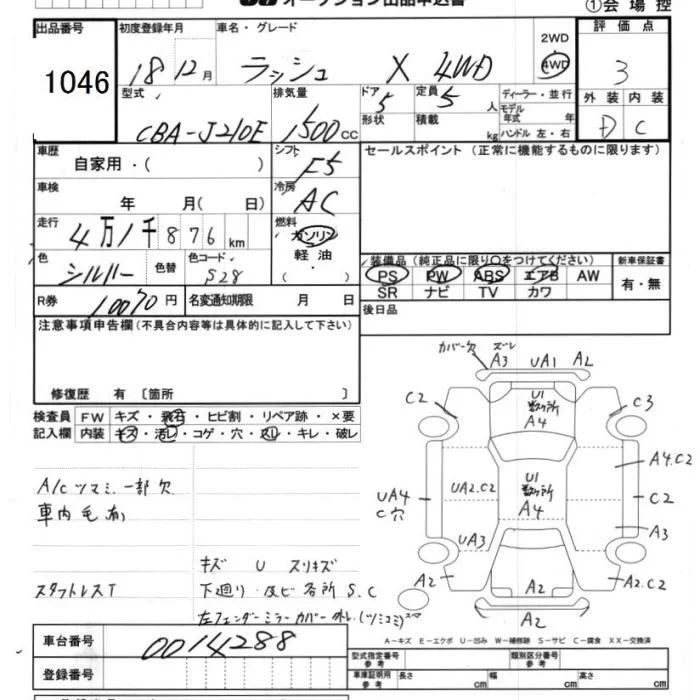 オークション出品申込書 ①会場控
出品番号 初度登録年月 車名・グレード 評価点
1046 18 12月 ラッシュ X 4WD 2WD 4WD 3
型式 排気量 ドア 5 定員 5人 ディーラー・並行 外装 内装
CBA-J210E 1500cc 形状 積載 kg モデル年式 年 ハンドル 左・右 D C
車歴 自家用・( ) シフト F5 セールスポイント (正常に機能するものに限ります)
車検 年 月(日) 冷房 AC
走行 4万1千876km 燃料 ガソリン
軽油
・
( )
色 シルバー 色替 色コード S28
装備品(純正品に限り○をつけてください) 新車保証書
PS PW ABS エアB AW 有・無
SR ナビ TV カワ
R券 10070円 名変通知期限 月 日 後日品
注意事項申告欄(不具合内容等は具体的に記入して下さい)
修復歴 有〔箇所 〕
検査員 FW キズ・飛石・ヒビ割・リペア跡・×要
記入欄 内装 キズ・汚レ・コゲ・穴・スレ・キレ・破レ
A/Cツマミ一部欠
車内毛有
キズ U スリキズ
スタットレスT 下廻り・及ビ各所 S.C
左フェンダーミラーカバー外レ(ツミコミ)
カバー欠 ズレ
A3 UA1 A2
C2 U1 数ヶ所 A4 C3
A4.C2
UA4 C穴 UA2.C2 U1 数ヶ所 A4 C2
UA3 A3
A2 A2 A2.C2
スペア A2
A-キズ E-エクボ U-凹み W-補修跡 S-サビ C-腐食 XX-交換済
車台番号 0014288 型式指定番号 参考 類別区分番号 参考
登録番号 車庫証明用 参考 長さ cm 幅 cm 高さ cm